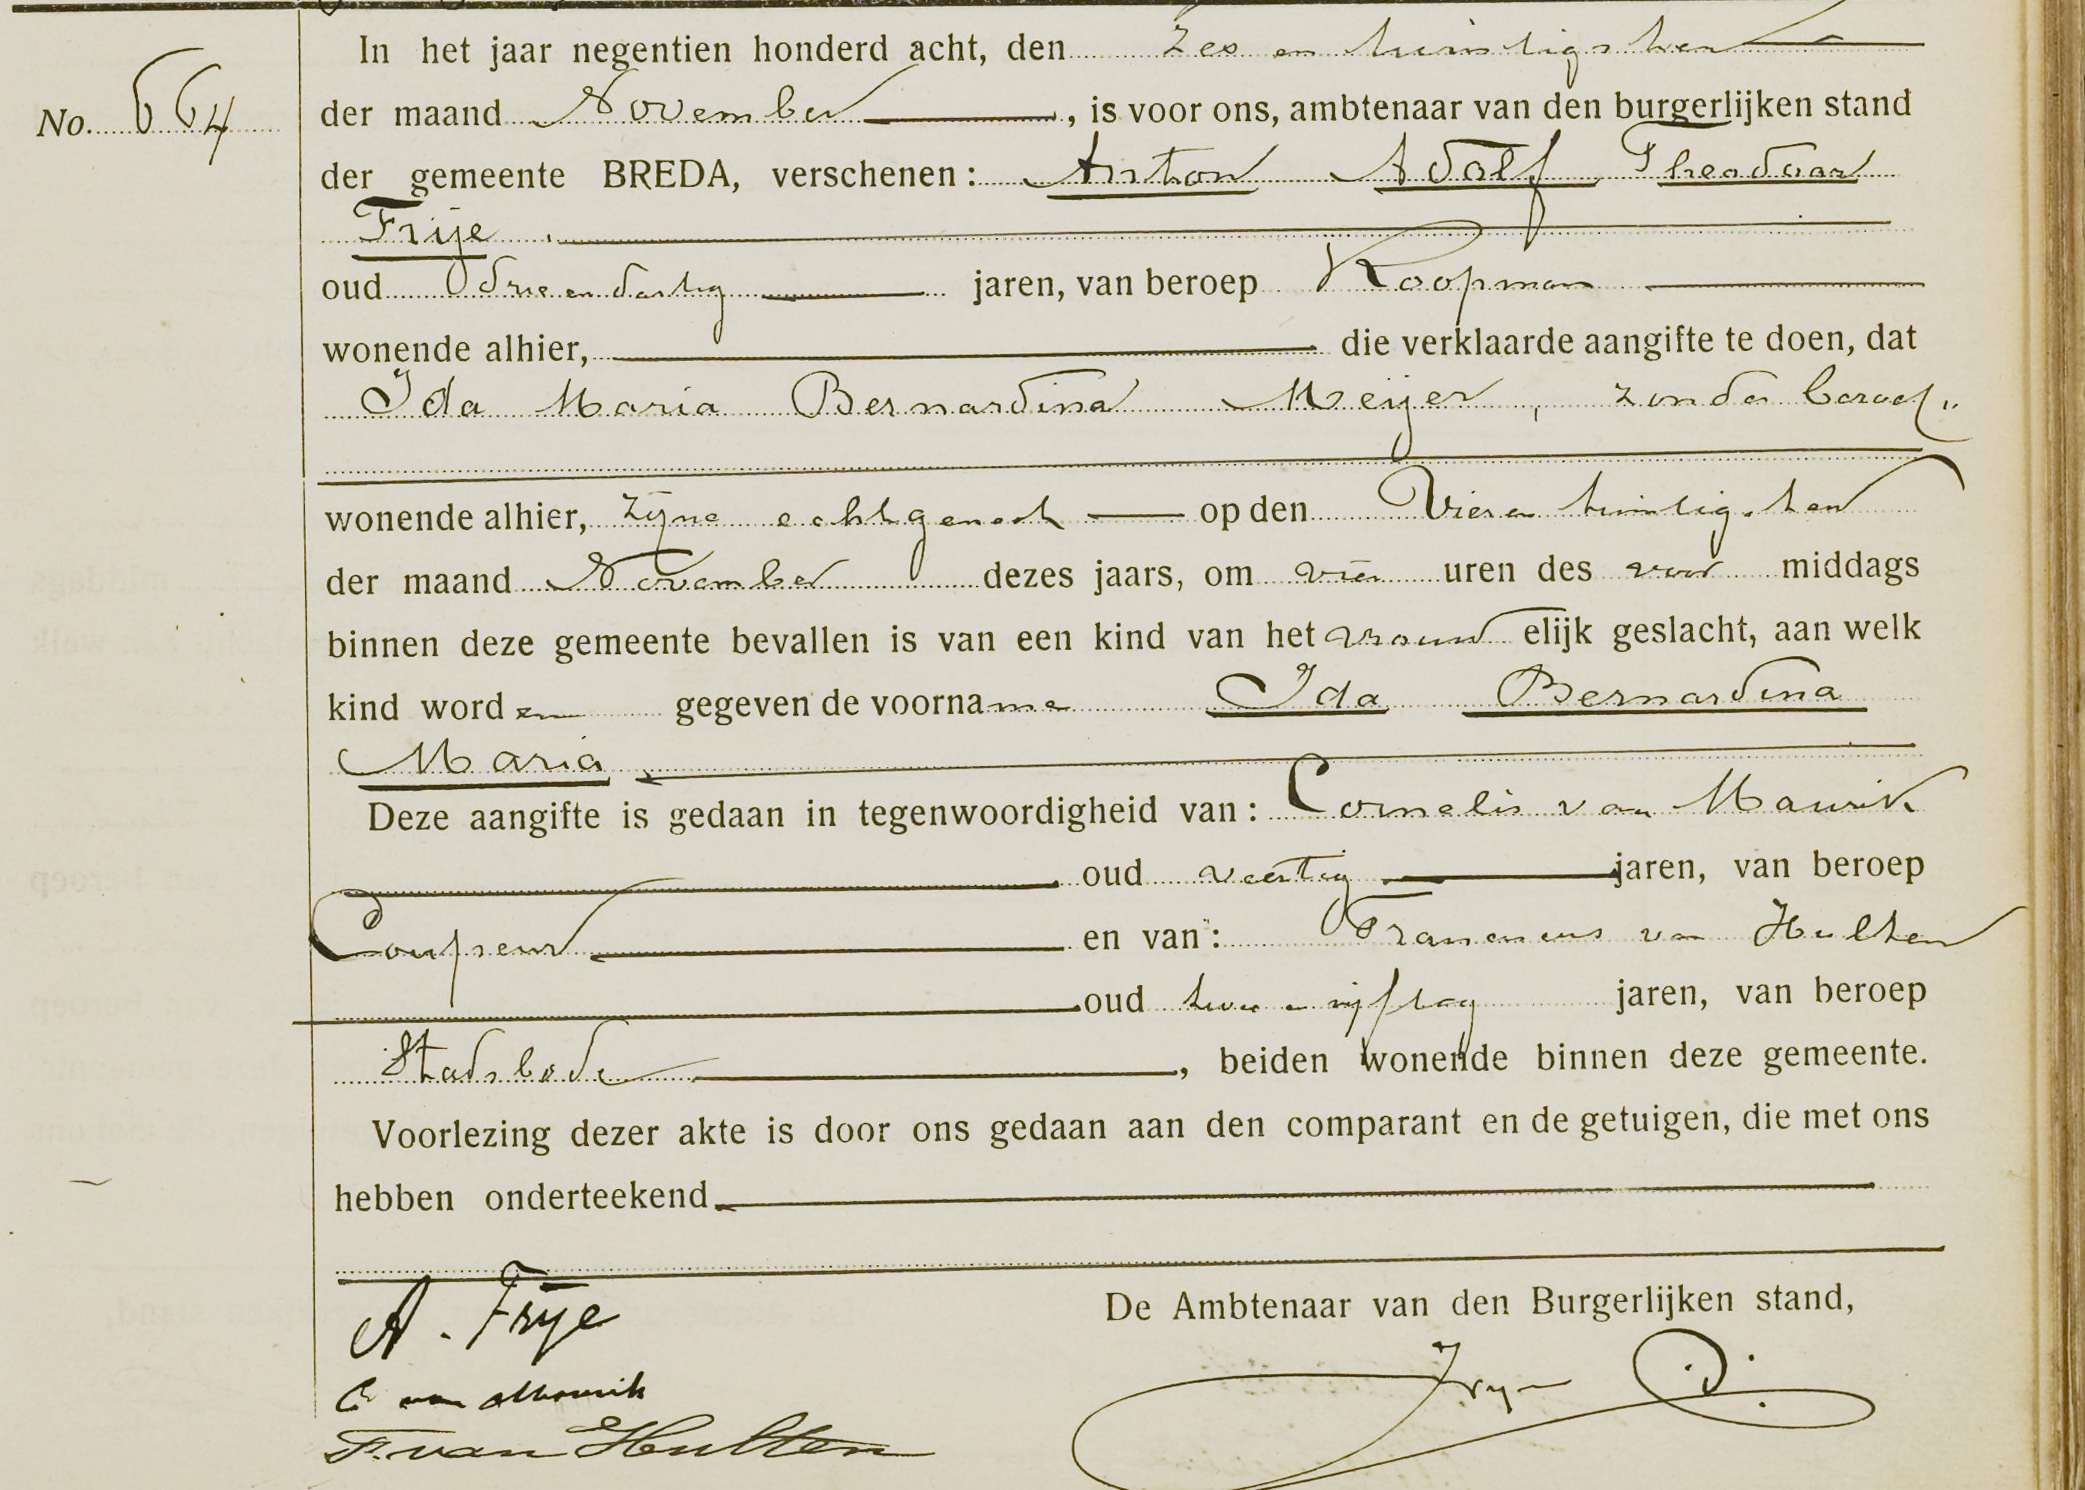 No. 664
In het jaar negentien honderd acht, den zes en twintigsten
der maand November, is voor ons, ambtenaar van den burgerlijken stand
der gemeente BREDA, verschenen: Anton Adolf Theodoor
Frije
oud drie en dertig jaren, van beroep Koopman
wonende alhier, die verklaarde aangifte te doen, dat
Ida Maria Bernardina Meijer, zonder beroep,
wonende alhier, zijne echtgenoot op den Vier en twintigsten
der maand November dezes jaars, om vier uren des voor middags
binnen deze gemeente bevallen is van een kind van het vrouwelijk geslacht, aan welk
kind worden gegeven de voorname Ida Bernardina
Maria
Deze aangifte is gedaan in tegenwoordigheid van: Cornelis van Mourik
oud veertig jaren, van beroep
Coupeur en van: Franciscus van Hulten
oud twee en vijftig jaren, van beroep
Stadsbode, beiden wonende binnen deze gemeente.
Voorlezing dezer akte is door ons gedaan aan den comparant en de getuigen, die met ons
hebben onderteekend
A. Frije
De Ambtenaar van den Burgerlijken stand,
C van Mourik
F. van Hulten